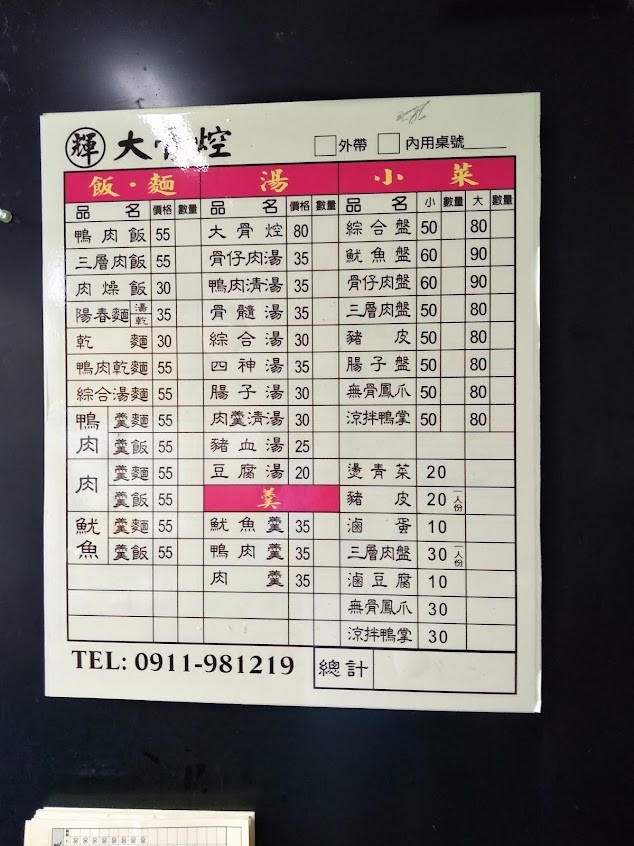 輝 大骨焢 外帶 內用桌號
飯・麵
品名 價格 數量
鴨肉飯 55
三層肉飯 55
肉燥飯 30
陽春麵 湯 乾 35
乾麵 30
鴨肉乾麵 55
綜合湯麵 55
鴨肉 羹麵 55
羹飯 55
肉 羹麵 55
羹飯 55
魷魚 羹麵 55
羹飯 55
湯
品名 價格 數量
大骨焢 80
骨仔肉湯 35
鴨肉清湯 35
骨髓湯 35
綜合湯 30
四神湯 35
腸子湯 30
肉羹清湯 30
豬血湯 25
豆腐湯 20
羹
魷魚羹 35
鴨肉羹 35
肉羹 35
小菜
品名 小 數量 大 數量
綜合盤 50 80
魷魚盤 60 90
骨仔肉盤 60 90
三層肉盤 50 80
豬皮 50 80
腸子盤 50 80
無骨鳳爪 50 80
涼拌鴨掌 50 80
燙青菜 20
豬皮 20 一人份
滷蛋 10
三層肉盤 30 一人份
滷豆腐 10
無骨鳳爪 30
涼拌鴨掌 30
TEL: 0911-981219 總計